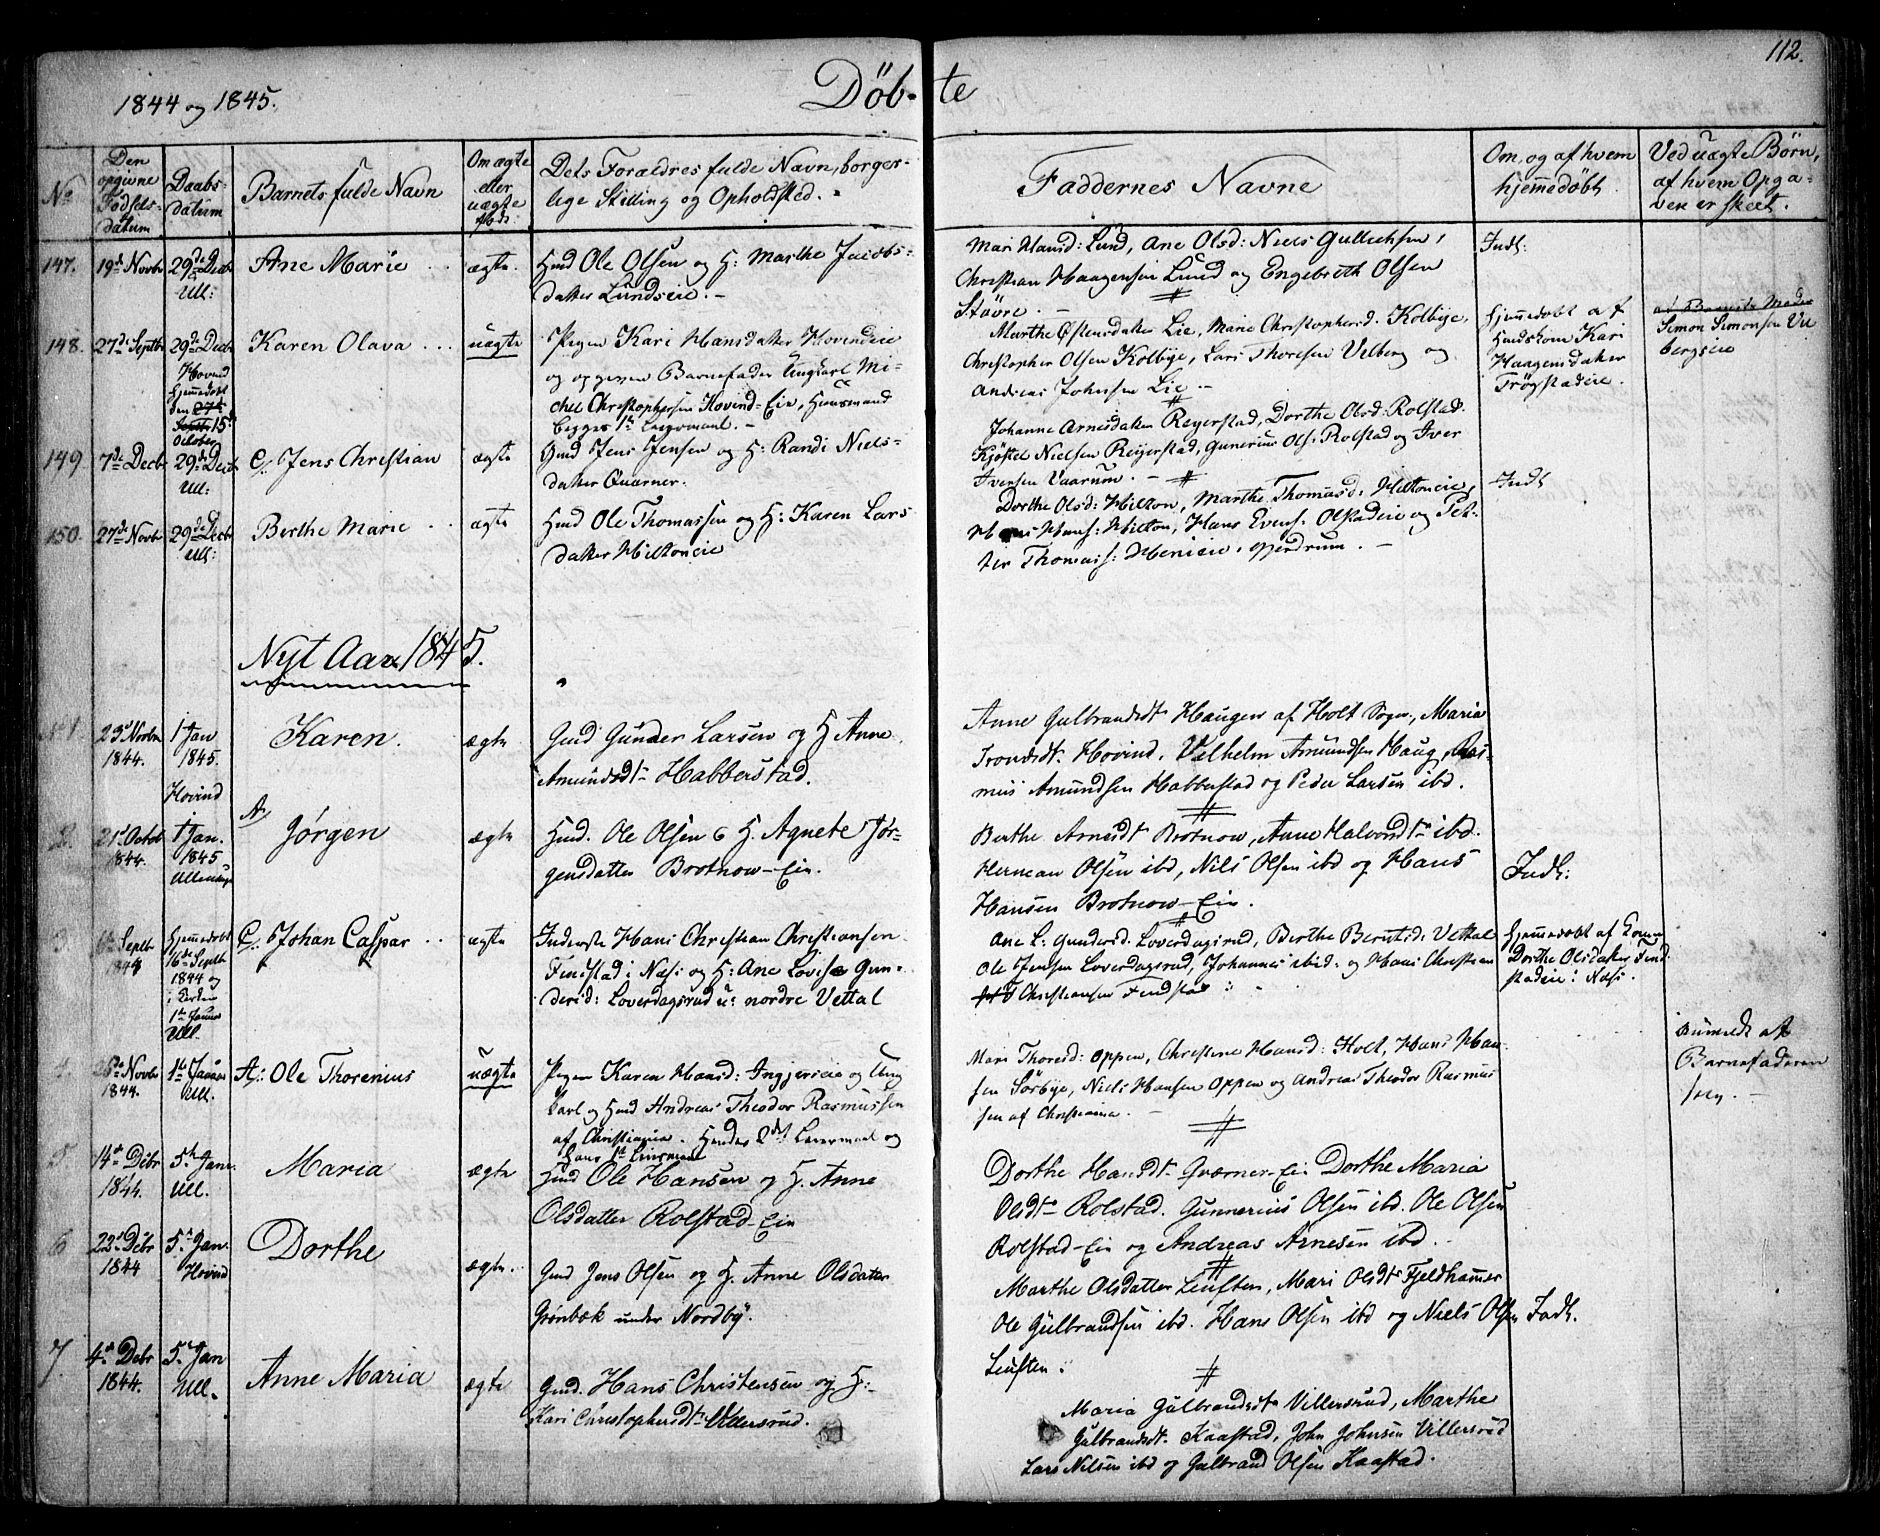 112.
1844 og 1845.
Döb- te
No
Den opgivne Fødsels-datum
Daabs-datum
Barnets fulde Navn
Om ægte eller uægte født.
Dets Forældres fulde Navn, borger-
lige Stilling og Opholdsted.
Faddernes Navne
Om, og af hvem
hjemmedöbt.
Ved uægte Börn,
af hvem Opga-
ven er skeet.
147. 19de Novbr 29de Decbr Ull: Ane Marie ægte.
Hmd Ole Olsen og H: Marthe Jacobs-
datter Lundseie. –
Mari Hansd: Lund, Ane Olsd: Niels Gullichsen,
Christian Haagensen Lund og Engebreth Olsen
Stövre. –
Indl:
148. 27de Septbr 29de Decbr Hovind Hjemmedöbt den 27de Septbr 15de October
Karen Olava uægte
Pigen Kari Hansdatter Hovindeie
og opgiven Barnefader Ungkarl Mi-
chel Christophersen Hovind-Eie, Huusmand
begges 1ste Leiermaal. –
Marthe Østensdatter Lie, Marie Christophersd. Kolbye,
Christopher Olsen Kolbye, Lars Thoresen Velberg og
Andreas Johnsen Lie –
Hjemmedöbt af
Huuskone Kari
Haagensdatter
Trögstadeie.
af Barnets Moder
Simon Simonsen Ve
bergseie
149. 7de Decbr 29de Decbr Ull: C/: Jens Christian ægte
Gmd Jens Jensen og H: Randi Niels-
datter Qvarner.
Johanne Arnesdatter Reyerstad, Dorthe Olsd: Rolstad.
Kjöstel Nielsen Reyerstad, Gunerius Ols: Rolstad og Iver
Iversen Vaarum. –
Indl
150. 27de Novbr 29de Decbr Ull: Berthe Marie ægte
Hmd Ole Thomassen og H: Karen Lars
datter Hiltoneie
Dorthe Olsd: Hilton, Marthe Thomasd. Hiltoneie,
Hans Hans: Hilton, Hans Evens. Olstadeie og Pet-
ter Thomass: Henieie, Gjerdrum. –
Nyt Aar 1845.
No 1 23de Novbr 1844. 1 Jan 1845. Hovind Karen. ægte
Gmd Gunder Larsen og H Anne
Amundsdtr Habberstad.
Anne Gulbrandsdt. Haugen af Holt Sogn, Maria
Trondsdt. Hovind, Velhelm Amundsen Haug, Ras-
mus Amundsen Habberstad og Peder Larsen ibd.
2. 21de Octobr 1844. 1 Jan. 1845 Ullensager A/ Jørgen ægte
Hmd. Ole Olsen & H. Agnete Jör-
gensdatter Brotnow-Eie.
Berthe Arnesdt Brotnow, Anne Halvorsdtr ibd.
Herman Olsen ibd, Nils Olsen ibd og Hans
Hansen Brotnow-Eie.
Indl:
3 Septbr 1844 Hjemmedöbt 16de Septbr 1844 og i Kirken 1ste Januar Ull. C/: Johan Caspar ægte
Inderste Hans Christian Christiansen
Findstad i Næs: og H: Ane Lovise Gun-
dersd: Loverdagsrud u: nordre Vettal
Ane L: Gundersd. Loverdagsrud, Berthe Berntsd: Vettal
Ole Jensen Loverdagsrud, Johannes ibid: og Hans Christian
Christiansen Findstad
Hjemmedöbt af
Dorthe Olsdatter Find
stadeie i Næs.
4. 26de Novbr 1844. 1ste Januar Ull. A/: Ole Thorenius uægte
Pigen Karen Hansd: Inggjerieie og Ung
karl og Hmd Andreas Theodor Rasmussen
af Christiania. Hendes 2det Leiermaal og
Hans 1ste Leiermaal
Mari Thoresd: Oppen, Christine Hansd: Holt, Hans Han-
sen Sörbye, Niels Hansen Oppen og Andreas Theodor Rasmus
sen af Christiania. –
Anmeldt af
Barnefaderen
selv. –
5. 14de Debr 1844. 5te Jan. Ull. Maria ægte
Hmd Ole Hansen og H. Anne
Olsdatter Rolstad-Eie
Dorthe Hansdtr Qværner-Eie Dorthe Maria
Olsdtr Rolstad. Gunnerius Olsen ibd. Ole Olsen
Rolstad-Eie og Andreas Arnesen ibd.
6 22de Debr 1844 5te Jan. Hovind Dorthe ægte.
Gmd Jens Olsen og H. Anne Olsdatter
Grønbæk under Nordby.
Marthe Olsdatter Leuften, Mari Olsdtr Fjeldhammer
Ole Gulbrandsen ibd. Hans Olsen ibd og Niels Olsen
Leuften.
Indl.
7. 4de Debr 1844. 5te Jan Ull. Anne Maria ægte
Gmd. Hans Christensen og H:
Kari Christophersdtr Villersrud.
Maria Gulbrandsdtr Villersrud, Marthe
Gulbrandsdt. Kaastad, John Johnsen Villersrud
Lars Nilsen ibd og Gulbrand Olsen Kaastad.